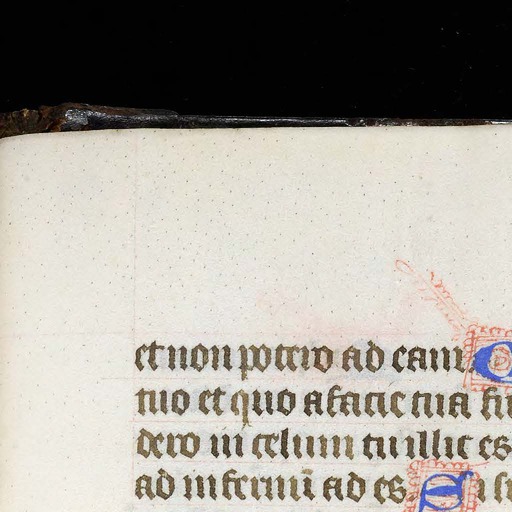 et non potero ad eam. Q
tuo et quo a facie tua fu
dero in celum tu illic es
ad infernū ad es. S i su